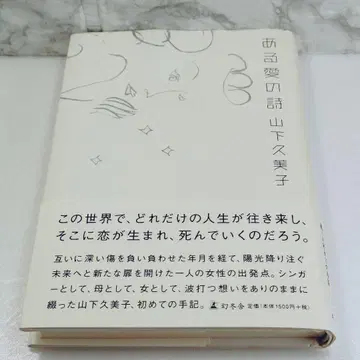 ある愛の詩 山下久美子
この世界で、どれだけの人生が往き来し、
そこに恋が生まれ、死んでいくのだろう。
互いに深い傷を負い負わせた年月を経て、陽光降り注ぐ
未来へと新たな扉を開けた一人の女性の出発点。シンガ
ーとして、母として、女として、波打つ想いをありのままに
綴った山下久美子、初めての手記。
幻冬舎 定価(本体1500円+税)